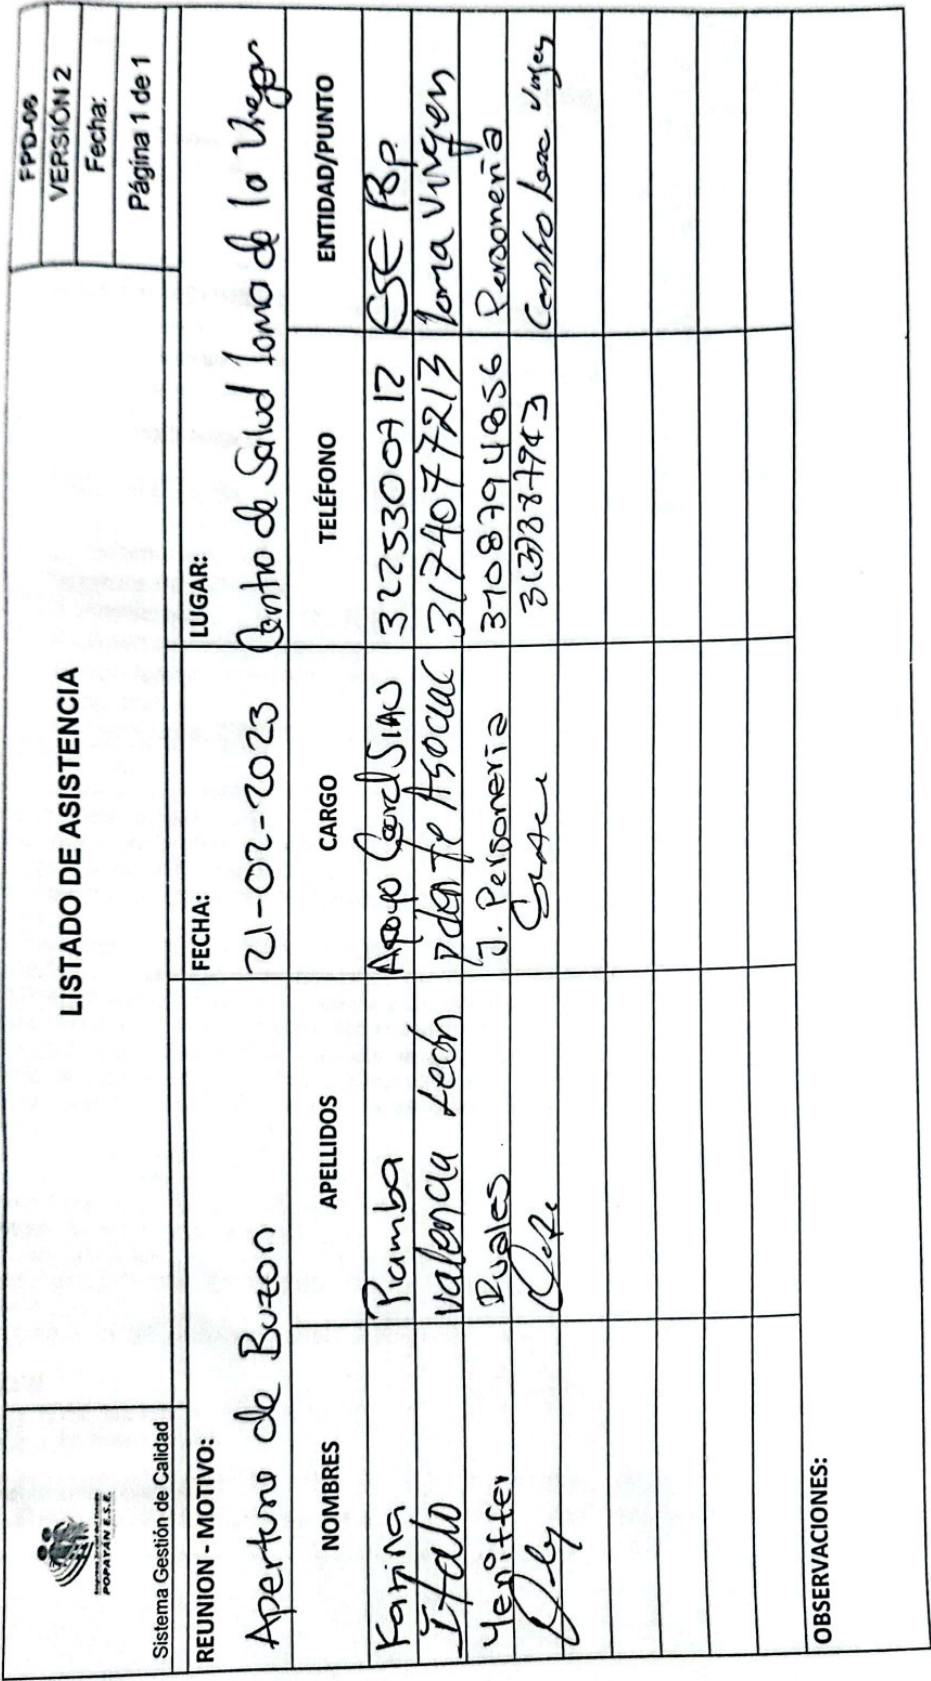 POPAYÁN E.S.E.
Sistema Gestión de Calidad
LISTADO DE ASISTENCIA
FPD-06
VERSIÓN 2
Fecha:
Página 1 de 1
REUNION - MOTIVO:
Apertura de Buzon
FECHA:
21-02-2023
LUGAR:
Centro de Salud Loma de la Virgen
NOMBRES APELLIDOS CARGO TELÉFONO ENTIDAD/PUNTO
Karina Piamba Apoyo Coord SIAU 3225300712 ESE Pop.
Italo Valencia León Asocuac 3174077213 Loma Virgen
Yeniffer Duales J. Personería 3108794856 Personería
3137887943 Centro Loma Virgen
OBSERVACIONES: